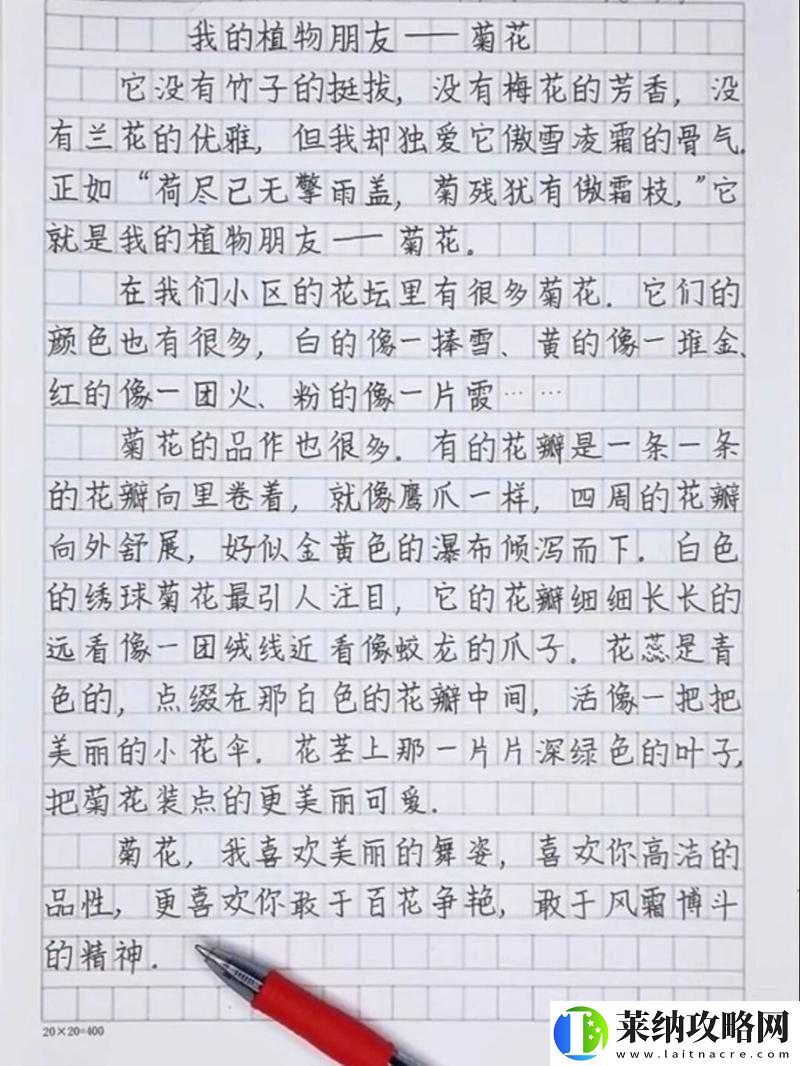 我的植物朋友——菊花
它没有竹子的挺拔,没有梅花的芳香,没
有兰花的优雅,但我却独爱它傲雪凌霜的骨气.
正如“荷尽已无擎雨盖,菊残犹有傲霜枝,”它
就是我的植物朋友——菊花。
在我们小区的花坛里有很多菊花.它们的
颜色也有很多,白的像一捧雪、黄的像一堆金、
红的像一团火、粉的像一片霞……
菊花的品作也很多.有的花瓣是一条一条
的花瓣向里卷着,就像鹰爪一样,四周的花瓣
向外舒展,好似金黄色的瀑布倾泻而下.白色
的绣球菊花最引人注目,它的花瓣细细长长的
远看像一团绒线近看像蛟龙的爪子.花蕊是青
色的,点缀在那白色的花瓣中间,活像一把把
美丽的小花伞.花茎上那一片片深绿色的叶子,
把菊花装点的更美丽可爱.
菊花,我喜欢美丽的舞姿,喜欢你高洁的
品性,更喜欢你敢于百花争艳,敢于风霜博斗
的精神.
20×20=400
莱纳攻略网
www.laitnacre.com